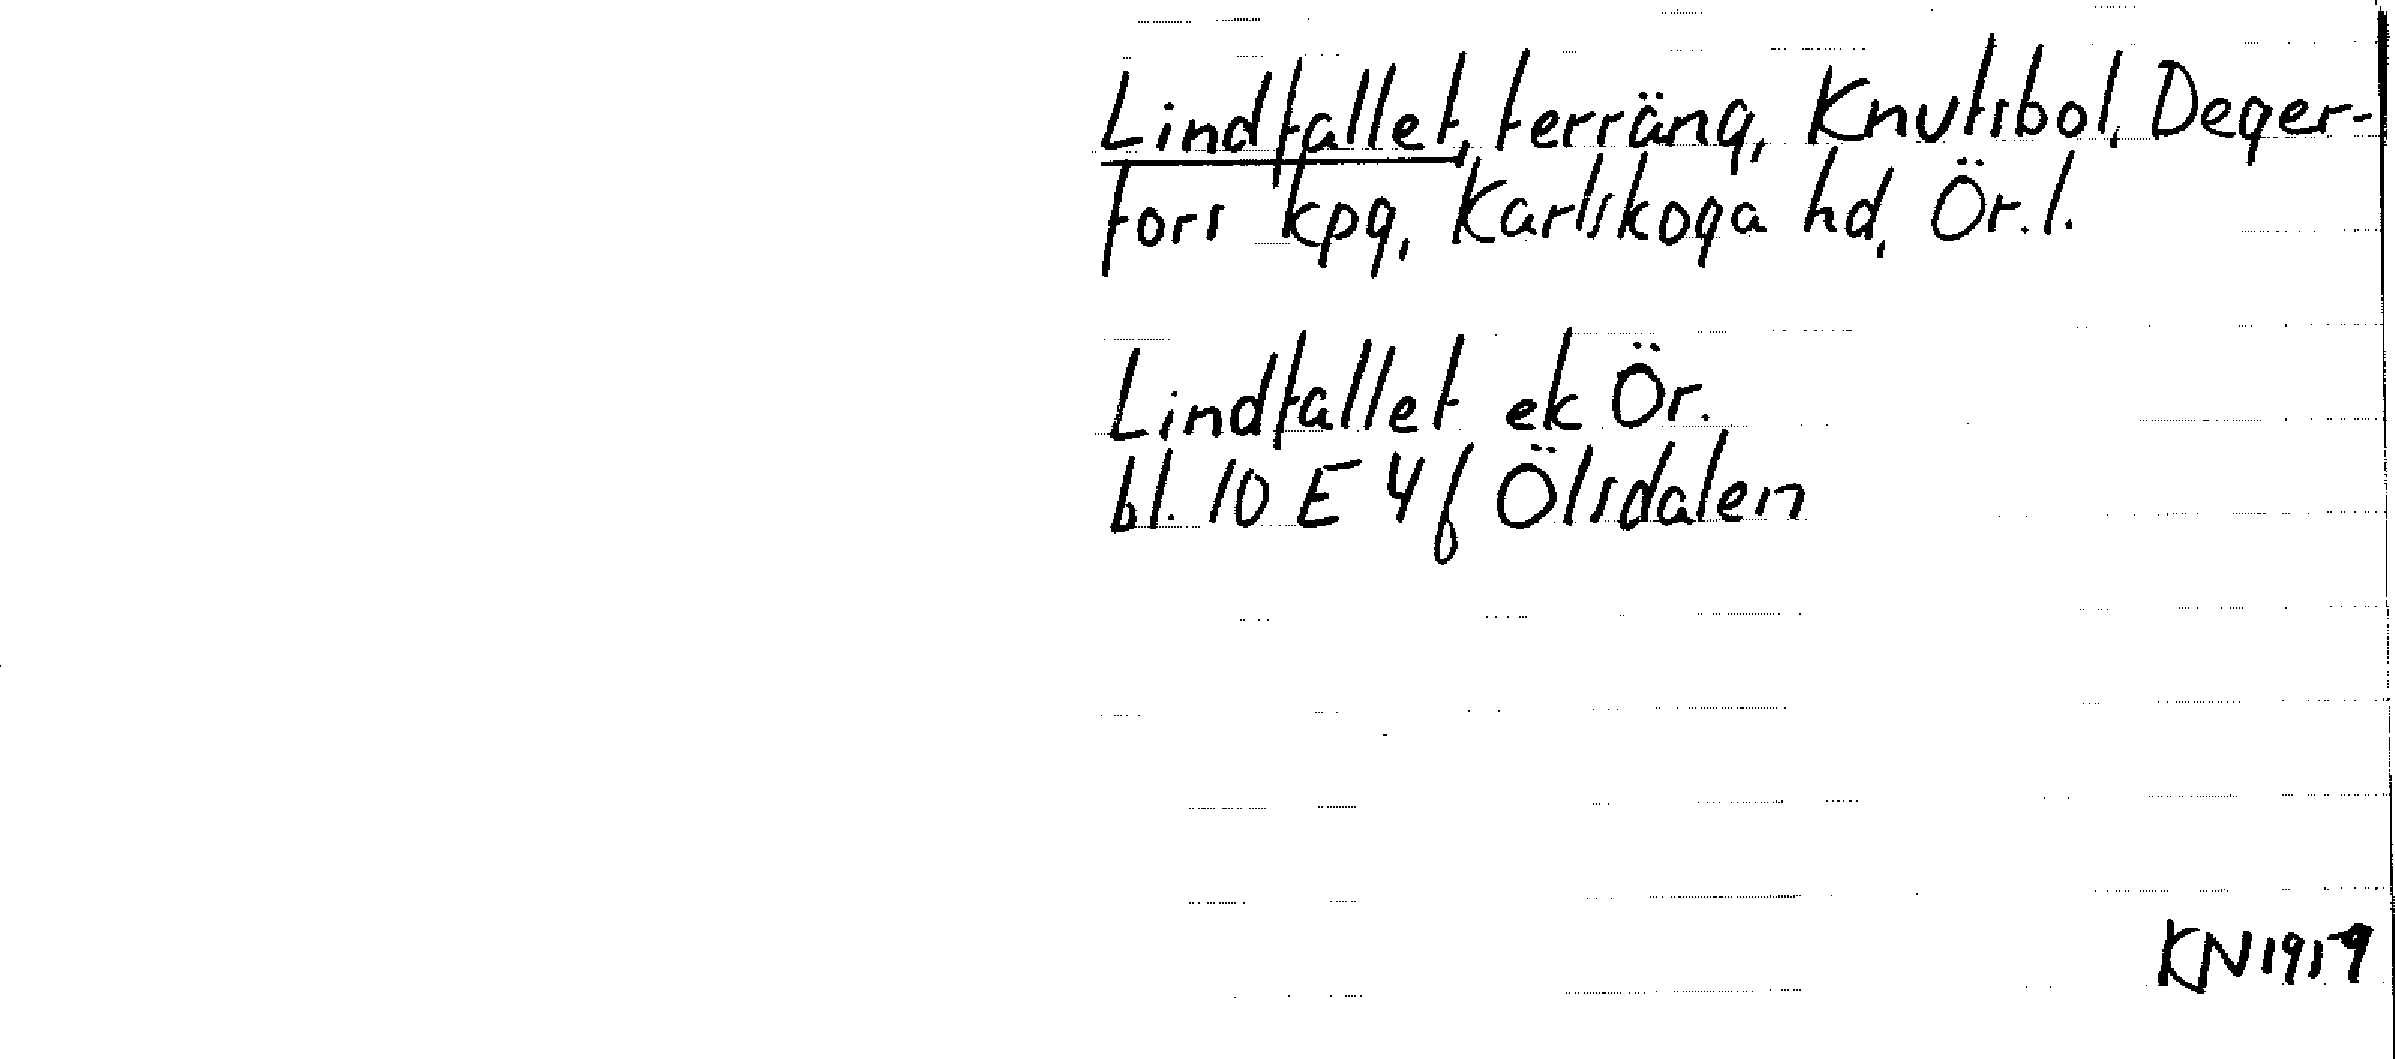 Lindfallet, terräng, Knutsbol, Deger-
fors kpg, Karlskoga hd, Ör. l.
Lindfallet ek Ör.
bl. 10 E 4 f Ölsdalen